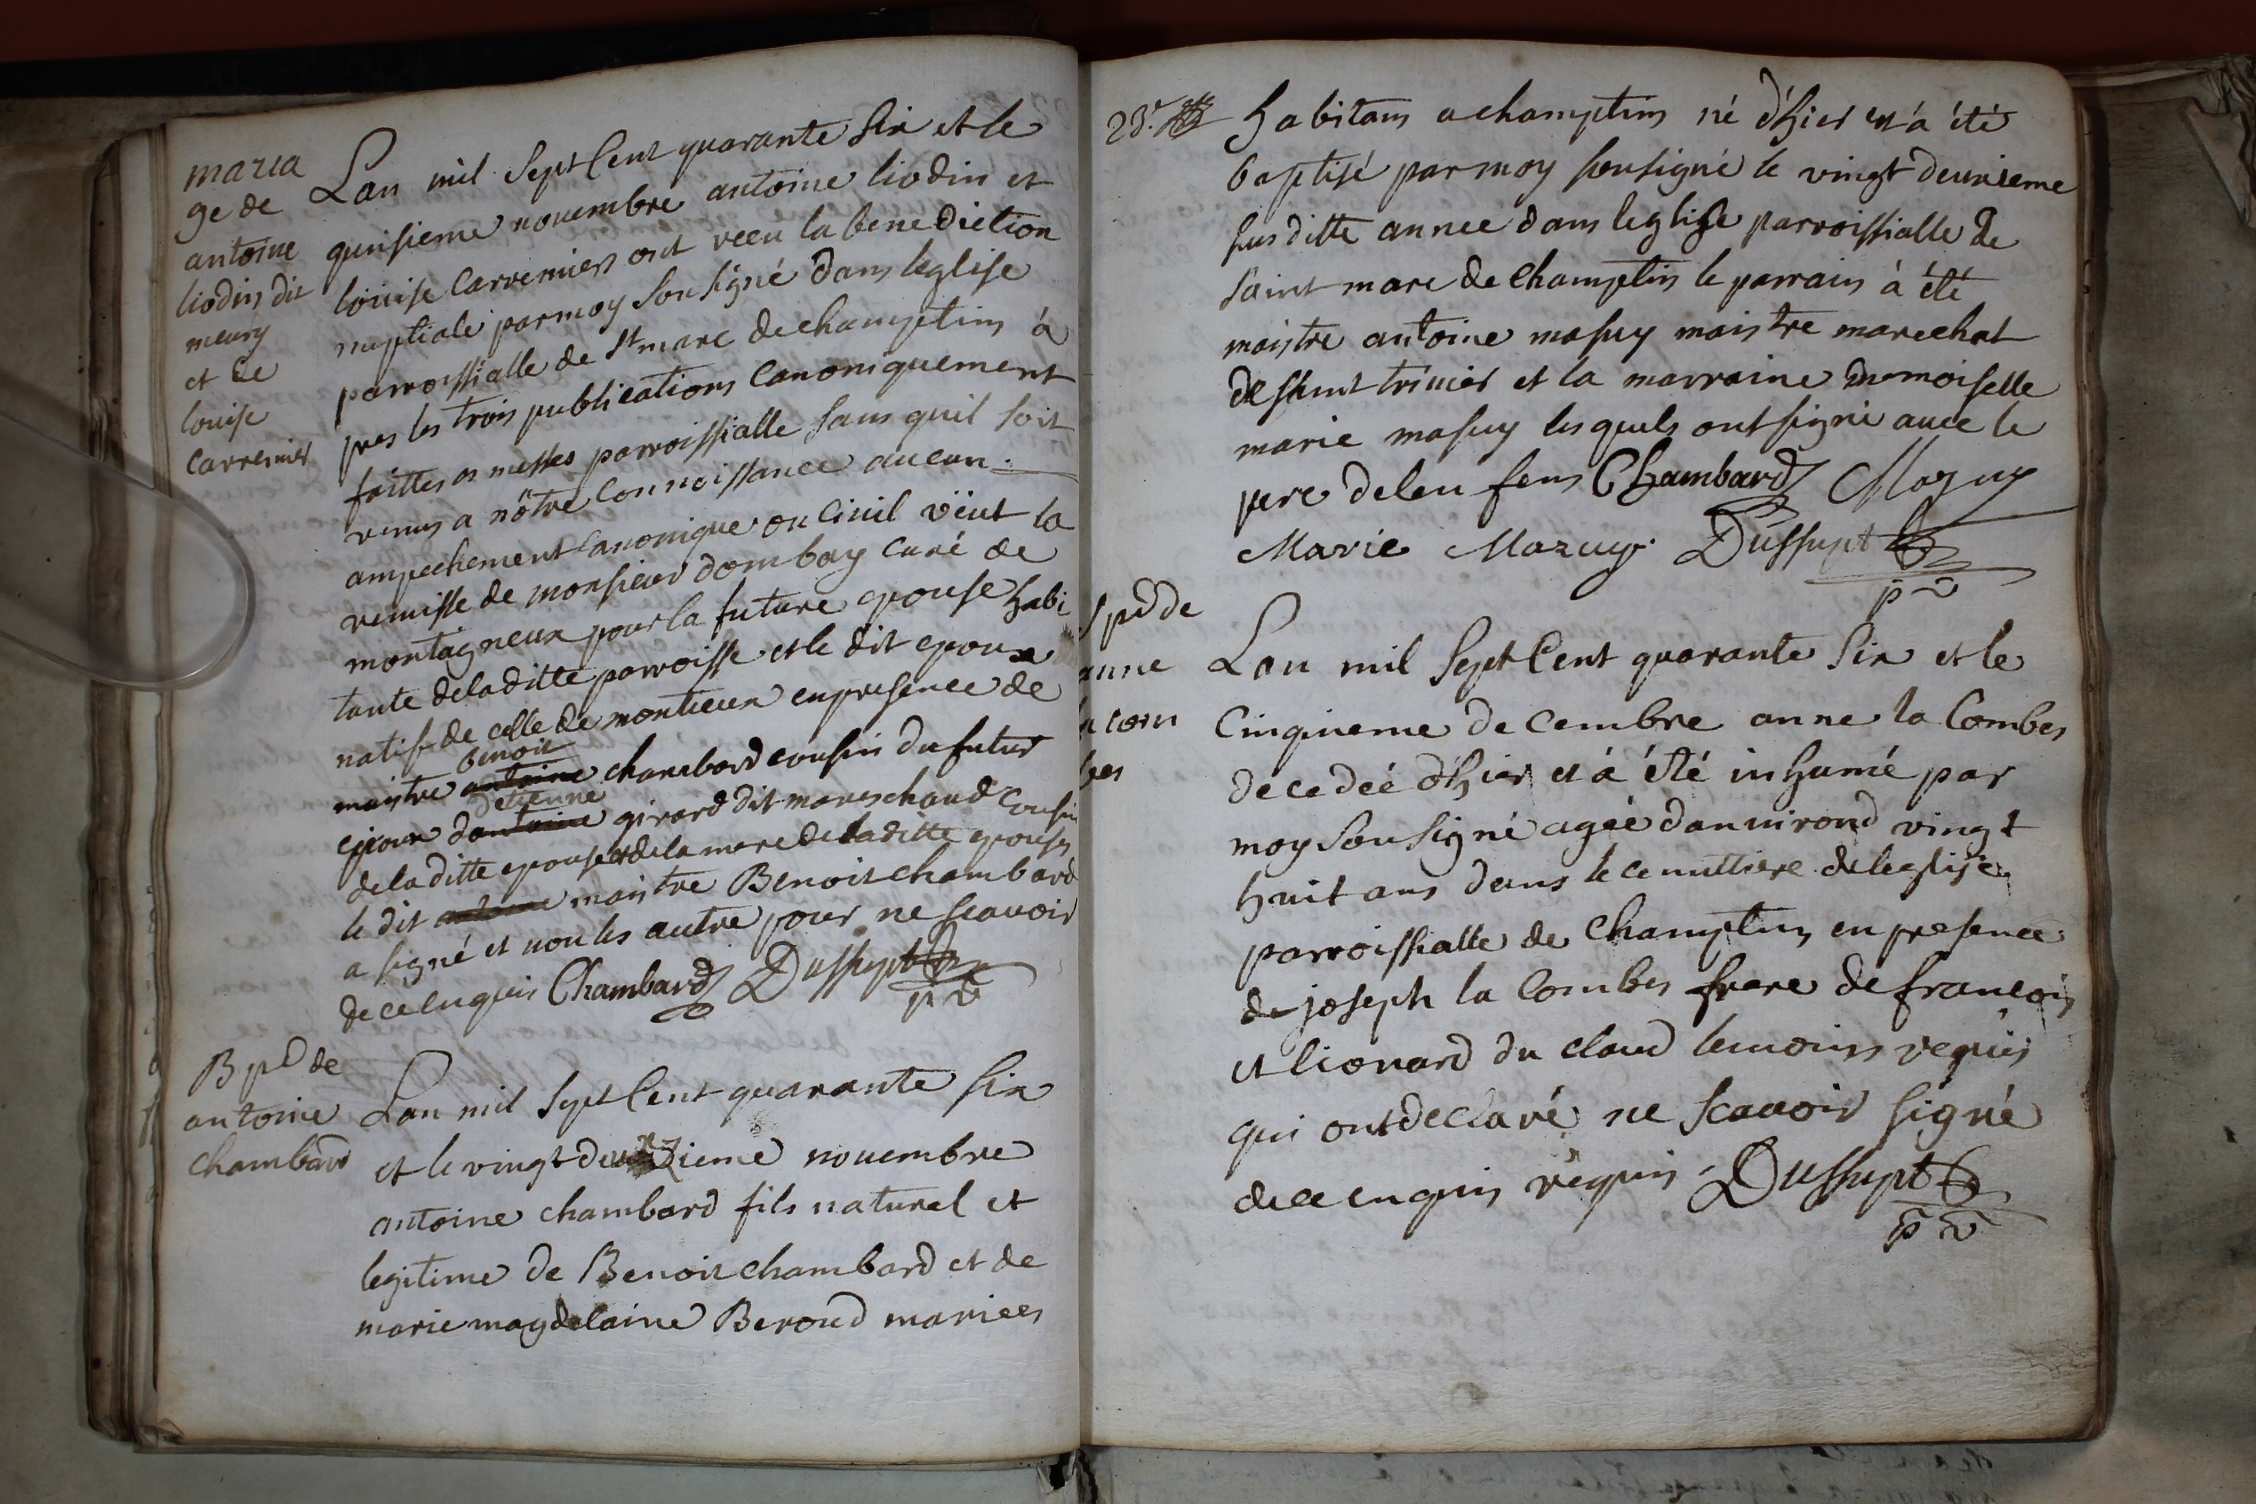 maria
ge de
antoine
liodin dit
meury
et de
louise
carremier
Lan mil sept Cent quarante six et le
quinsieme nouembre antoine liodin et
loüise Carremier ont receu la benediction
nuptiale par moy sousigné dans leglise
parroissialle de st marc de champtin à
pres les trois publications canoniquement
faittes os messes parroissialle sans quil soit
venus a nôtre connoissance aucun
ampechement canonique ou ciuil vëut la
remisse de monsieur dombay curé de
montagneux pour la future epouse habi
tante de la ditte parroisse et le dit epoux
natif de celle de montieux en presence de
maistre antoine benoit chambard cousin du futur
epoux dantoine detienne girard dit mareschaud cousin
de la ditte epouse et de la mere de la ditte epouse
le dit antoine maistre Benoit chambard
a signé et non les autre pour ne scauoir
de ce enquis Chambard Dussupt
p v
B pd de
antoine
chambard
Lan mil sept Cent quarante six
et le vingt deuxieme nouembre
antoine chambard fils naturel et
legitime de Benoit chambard et de
marie magdelaine Beroud mariees
23.e
habitans a champtin né d'hier et a été
baptisé par moy sousigné le vingt deuxieme
sus ditte annee dans leglise parroissialle de
saint marc de Champtin le parrain à été
maistre antoine masuy maistre marechal
de saint trivier et la marraine demoiselle
marie masuy les quels ont signé auec le
pere de leu fens Chambard Mazuy
Marie Mazuy. Dussupt
p v
Spd de
anne
la com
bes
Lan mil sept Cent quarante six et le
Cinquieme decembre anne la Combes
decedéé d'hier et à été inhumé par
moy sousigné agéé danuirond vingt
huit ans dans le cemittiere de leglise
parroissialle de Champtin en presence
de joseph la Combes frere de francois
et lionard du claud temoins requis
qui ont declaré ne scauoir signé
de ce enquis requis Dussupt
p v